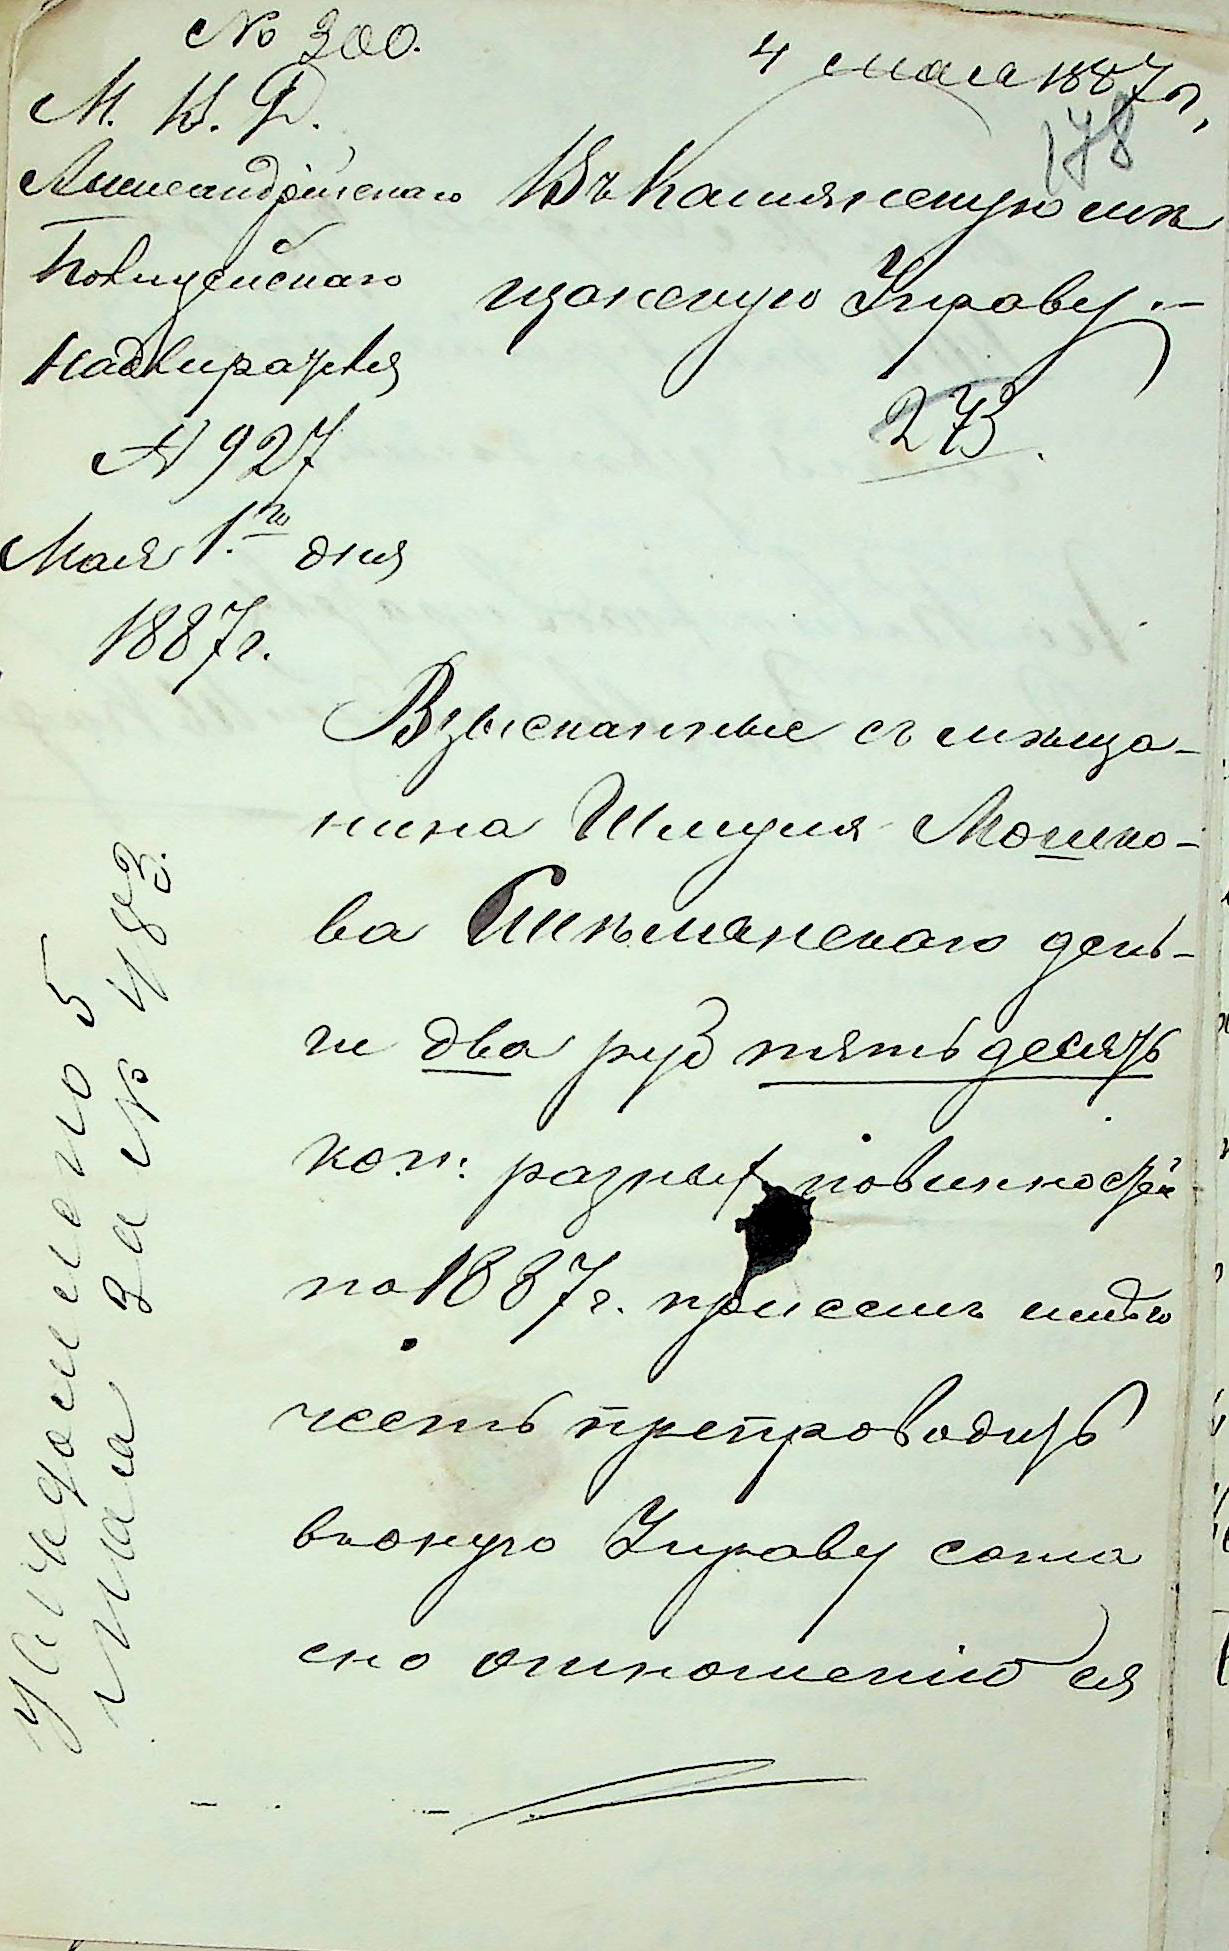 № 300.
4 мая 1887 г,
178
М. В. Д.
Александрійскаго
Полицейскаго
Надзирателя
№ 927
Мая 1.го дня
1887 г.
Въ Камянскую мѣ
щанскую Управу.—
273.
Взысканные съ мѣща-
нина Шмуля Мошко-
ва день-
ги два руб пятьдесять
коп: разныхъ повинностей
по 1887 г. при семъ имѣю
честь препроводить
въ оную Управу согла
сно отношенію ея
Увѣдомлено 5
мая за № 483.